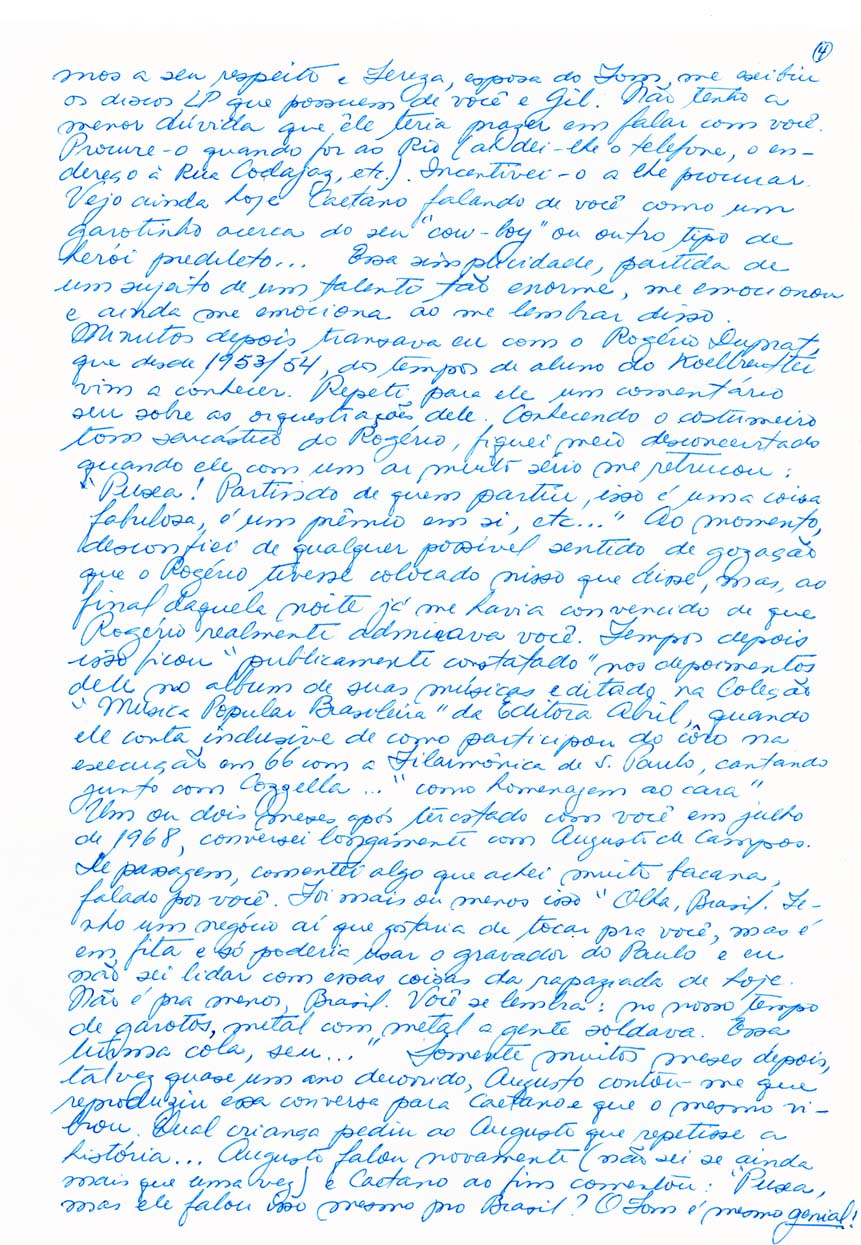 4
mos a seu respeito e Tereza, esposa do Tom, me exibiu
os discos LP que possuem de você e Gil. Não tenho a
menor dúvida que êle teria prazer em falar com você.
Procure-o quando for ao Rio (aí dei-lhe o telefone, o en-
dereço à Rua Codajaz, etc.). Incentivei-o a lhe procurar.
Vejo ainda hoje Caetano falando de você como um
garotinho acerca do seu "cow-boy" ou outro tipo de
herói predileto... Essa simplicidade, partida de
um sujeito de um talento tão enorme, me emocionou
e ainda me emociona ao me lembrar disso.
Minutos depois, transava eu com o Rogério Duprat,
que desde 1953/54, dos tempos de aluno do Koellreutter
vim a conhecer. Repeti para ele um comentário
seu sobre as orquestrações dele. Conhecendo o costumeiro
tom sarcástico do Rogério, fiquei meio desconcertado
quando ele com um ar muito sério me retrucou:
"Puxa! Partindo de quem partiu, isso é uma coisa
fabulosa, é um prêmio em si, etc..." Ao momento,
desconfiei de qualquer possível sentido de gozação
que o Rogério tivesse colocado nisso que disse, mas, ao
final daquela noite já me havia convencido de que
Rogério realmente admirava você. Tempos depois
isso ficou "publicamente constatado" nos depoimentos
dele no album de suas músicas editado na Coleção
"Música Popular Brasileira" da Editora Abril, quando
ele conta inclusive de como participou do côro na
execução em 66 com a Filarmônica de S. Paulo, cantando
junto com Cozzella... "como homenagem ao cara"
Um ou dois meses após ter estado com você em julho
de 1968, conversei longamente com Augusto de Campos.
De passagem, comentei algo que achei muito bacana,
falado por você. Foi mais ou menos isso "Olha, Brasil. Te-
nho um negócio aí que gostaria de tocar pra você, mas é
em fita e só poderia usar o gravador do Paulo e eu
não sei lidar com essas coisas da rapaziada de hoje.
Não é pra menos, Brasil. Você se lembra: no nosso tempo
de garotos, metal com metal a gente soldava. Essa
turma cola, seu..." Somente muitos meses depois,
talvez quase um ano decorrido, Augusto contou-me que
reproduziu essa conversa para Caetano e que o mesmo vi-
brou. Qual criança pediu ao Augusto que repetisse a
história... Augusto falou novamente (não sei se ainda
mais que uma vez) e Caetano ao fim comentou: "Puxa,
mas ele falou isso mesmo pro Brasil? O Tom é mesmo genial!